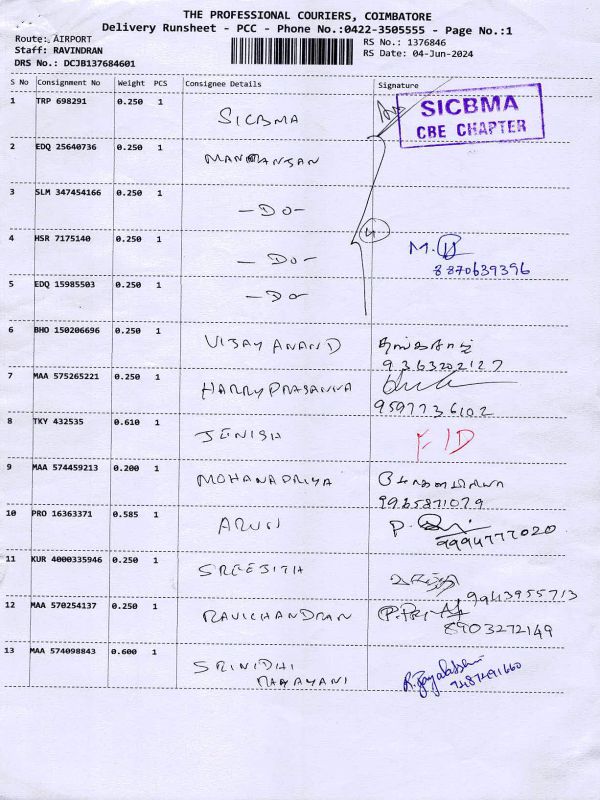 THE PROFESSIONAL COURIERS, COIMBATORE
Delivery Runsheet - PCC - Phone No.:0422-3505555 - Page No.:1
Route: AIRPORT RS No.: 1376846
Staff: RAVINDRAN RS Date: 04-Jun-2024
DRS No.: DCJB137684601
S No Consignment No Weight PCS Consignee Details Signature
1 TRP 698291 0.250 1 SICBMA
SICBMA
CBE CHAPTER
2 EDQ 25640736 0.250 1
3 SLM 347454166 0.250 1 - DO -
4 HSR 7175140 0.250 1 - DO - M.
8870639396
5 EDQ 15985503 0.250 1 - DO -
6 BHO 150206696 0.250 1 VIJAY ANAND
9363202127
7 MAA 575265221 0.250 1 HARRY PRASANNA
9597736102
8 TKY 432535 0.610 1 JENISH
9 MAA 574459213 0.200 1 MOHANAPRIYA
9965871079
10 PRO 16363371 0.585 1 ARUN P.
9994777020
11 KUR 4000335946 0.250 1 SREEJITH
9943955713
12 MAA 570254137 0.250 1 RAVICHANDRAN
8903272149
13 MAA 574098843 0.600 1 SRINIDHI
NARAYANI